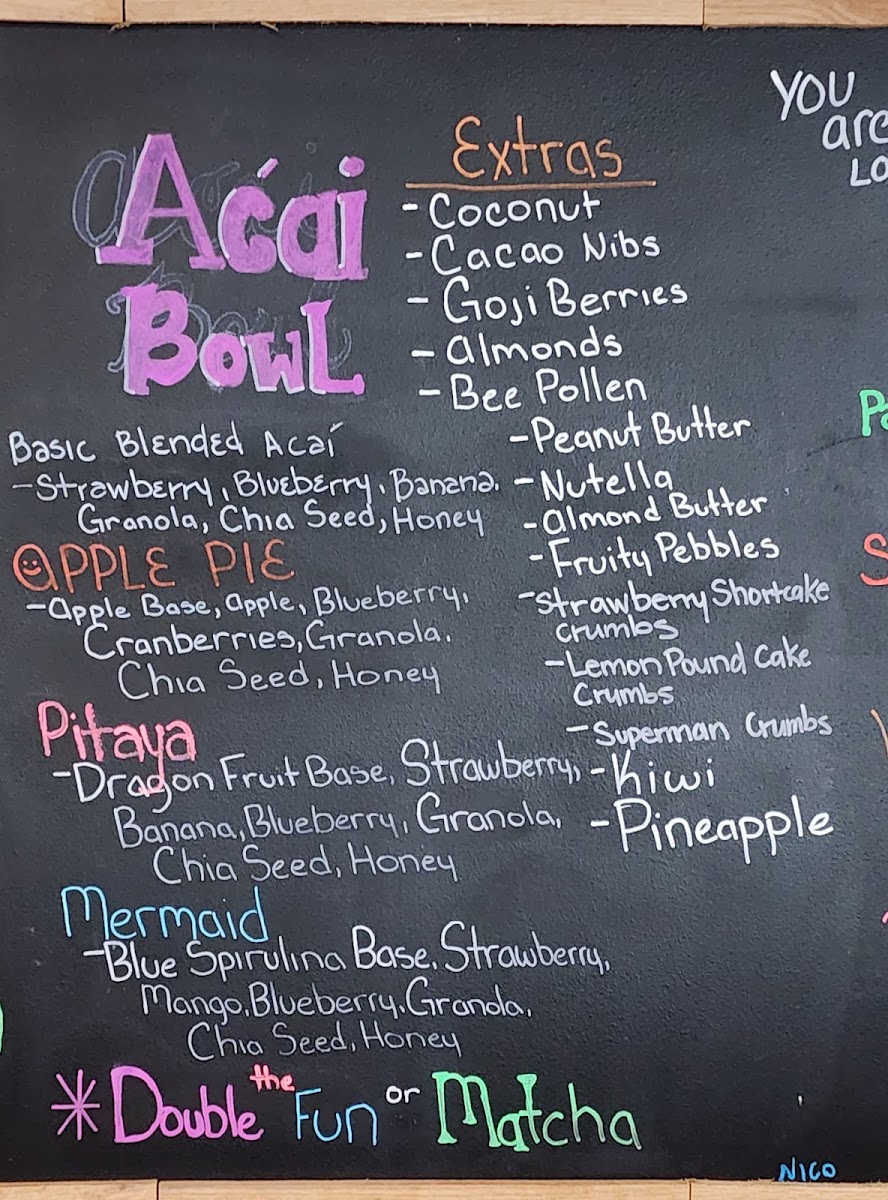 Açai
Bowl
Basic Blended Acaí
-Strawberry, Blueberry, Banana,
Granola, Chia Seed, Honey
APPLE PIE
-Apple Base, Apple, Blueberry,
Cranberries, Granola,
Chia Seed, Honey
Pitaya
-Dragon Fruit Base, Strawberry,
Banana, Blueberry, Granola,
Chia Seed, Honey
Mermaid
-Blue Spirulina Base, Strawberry,
Mango, Blueberry, Granola,
Chia Seed, Honey
*Double the Fun or Matcha
Extras
-Coconut
-Cacao Nibs
-Goji Berries
-Almonds
-Bee Pollen
-Peanut Butter
-Nutella
-Almond Butter
-Fruity Pebbles
-Strawberry Shortcake
Crumbs
-Lemon Pound Cake
Crumbs
-Superman Crumbs
-Kiwi
-Pineapple
YOU
are
LO
NICO